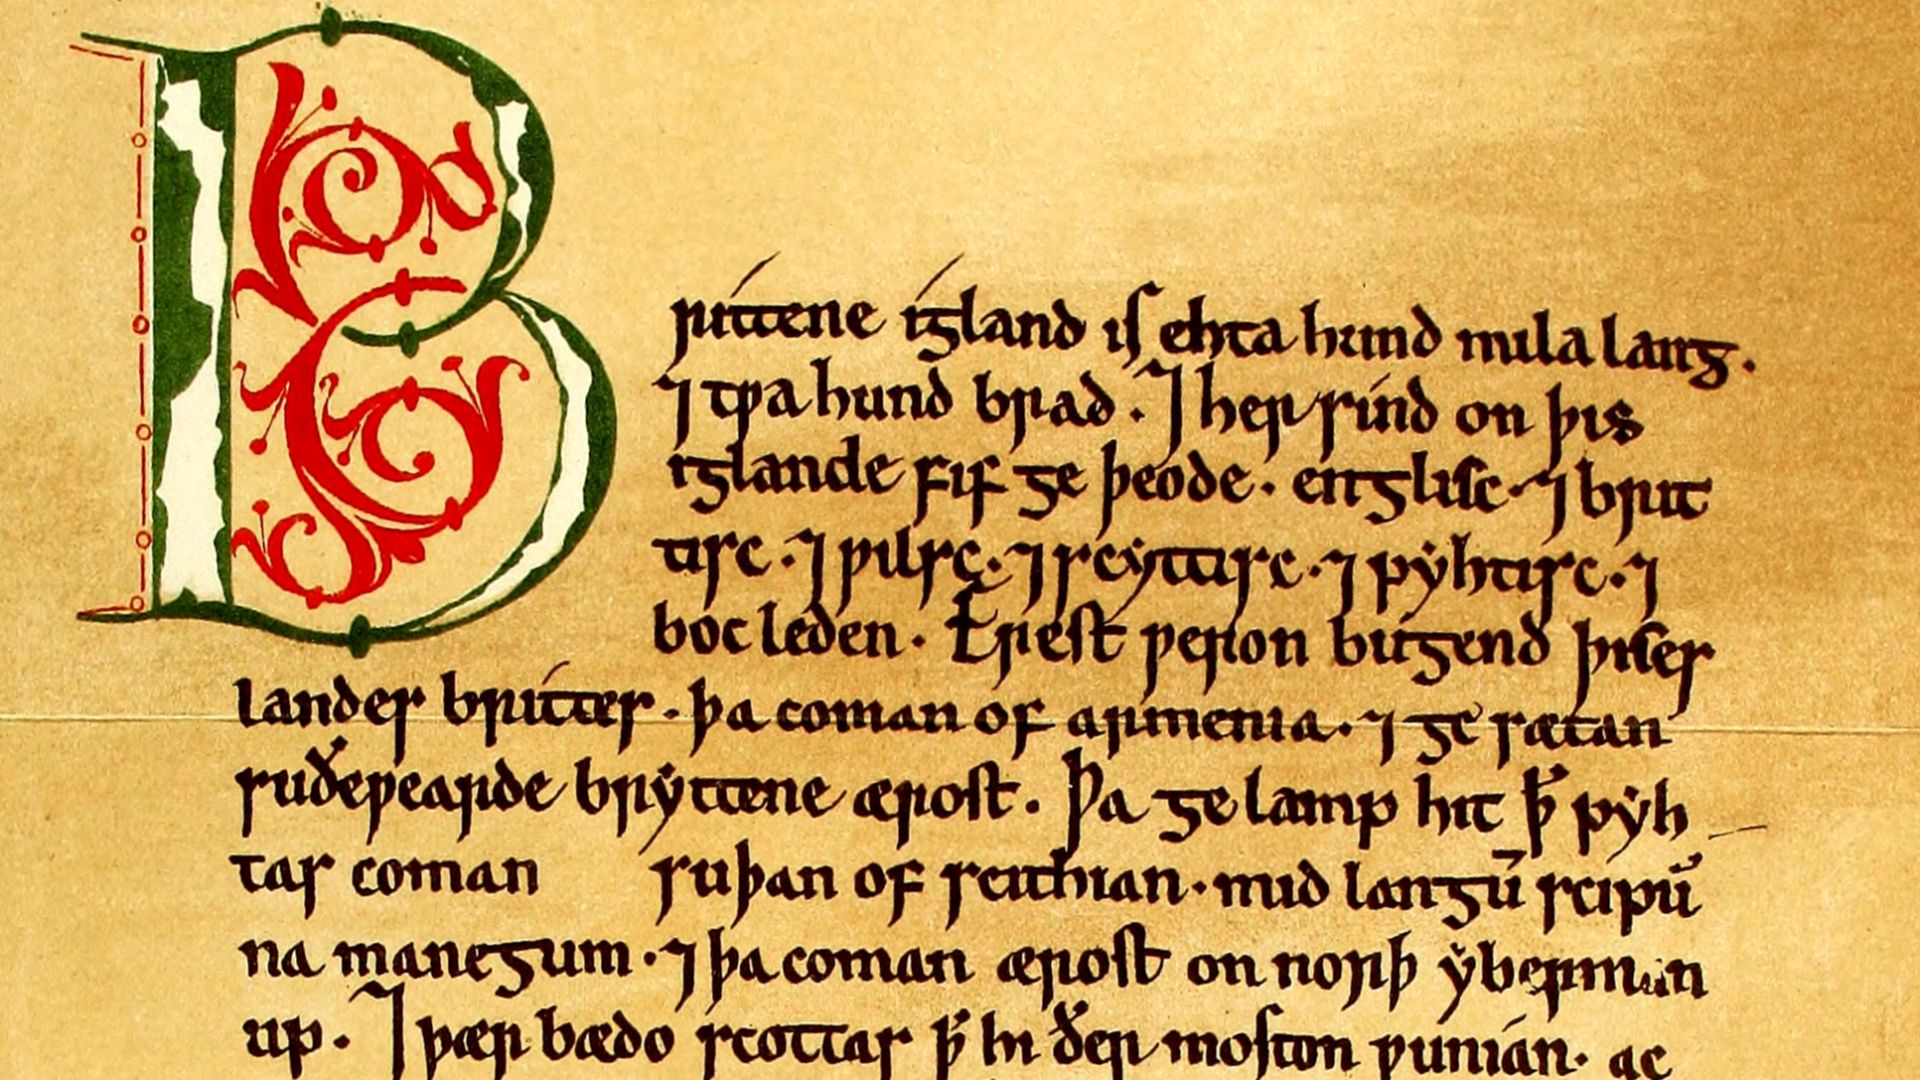 Brittene igland is ehta hund mila lang.
⁊ tƿa hund brad. ⁊ her sind on þis
iglande fif ge þeode. englisc. ⁊ brit
tisc. ⁊ ƿilsc. ⁊ scẏttisc. ⁊ pẏhtisc. ⁊
boc leden. Erest ƿeron bugend þises
landes brittes. þa coman of armenia. ⁊ ge sætan
suðeƿearde brẏttene ærost. Þa ge lamp hit ꝥ pẏh
tas coman suþan of scithian. mid langū scipū
na manegum. ⁊ þa coman ærost on norþ ẏbernian
up. ⁊ þær bædo scottas ꝥ hi ðer moston ƿunian. ac